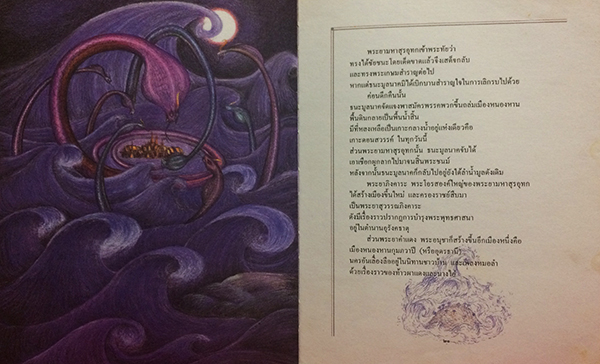 พระยามหาสุรอุทกเข้าพระทัยว่า
ทรงได้ชัยชนะโดยเด็ดขาดแล้วจึงเสด็จกลับ
และทรงพระเกษมสำราญต่อไป
หากแต่ธนะมูลนาคมิได้เบิกบานสำราญใจในการเลิกรบไปด้วย
ค่อนดึกคืนนั้น
ธนะมูลนาคจัดแจงพาสมัครพรรคพวกขึ้นถล่มเมืองหนองหาน
พื้นดินกลายเป็นพื้นน้ำสิ้น
มีที่หลงเหลือเป็นเกาะกลางน้ำอยู่แห่งเดียวคือ
เกาะดอนสวรรค์ ในทุกวันนี้
ส่วนพระยามหาสุรอุทกนั้น ธนะมูลนาคจับได้
เอาเชือกผูกลากไปมาจนสิ้นพระชนม์
หลังจากนั้นธนะมูลนาคก็กลับไปอยู่ยังใต้ลำน้ำมูลดังเดิม
พระยาภิงคาระ พระโอรสองค์ใหญ่ของพระยามหาสุรอุทก
ได้สร้างเมืองขึ้นใหม่ และครองราชย์สืบมา
เป็นพระยาสุวรรณภิงคาระ
ดังมีเรื่องราวปรากฏการบำรุงพระพุทธศาสนา
อยู่ในตำนานอุรังคธาตุ
ส่วนพระยาคำแดง พระอนุชาก็สร้างขึ้นอีกเมืองหนึ่งคือ
เมืองหนองหานกุมภวาปี (หรืออุดรธานี)
นครอันเลื่องลืออยู่ในนิทานชาวบ้าน และเพลงหมอลำ
ด้วยเรื่องราวของท้าวผาแดงและนางไอ่